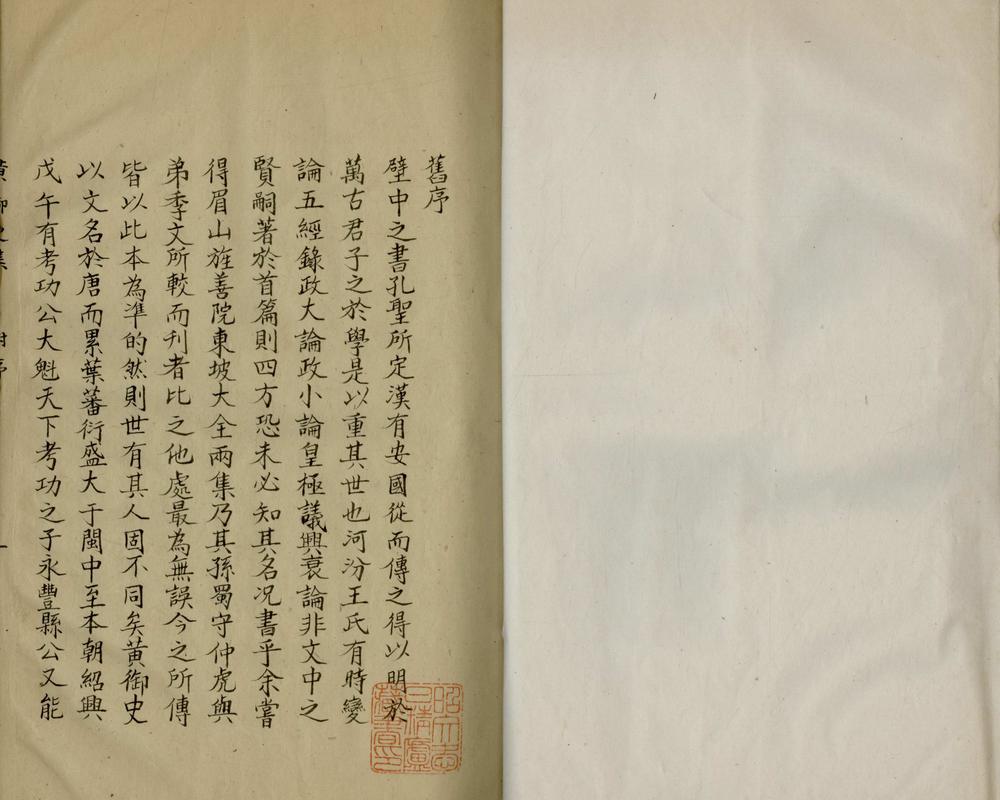 舊序
壁中之書孔聖所定漢有安國從而傳之得以明於
萬古君子之於學是以重其世也河汾王氏有時變
論五經錄政大論政小論皇極議興衰論非文中之
賢嗣著於首篇則四方恐未必知其名况書乎余嘗
得眉山旌善院東坡大全兩集乃其孫蜀守仲虎與
弟季文所較而刊者比之他處最為無誤今之所傳
皆以此本為準的然則世有其人固不同矣黃御史
以文名於唐而累葉蕃衍盛大于閩中至本朝紹興
戊午有考功公大魁天下考功之子永豐縣公又能